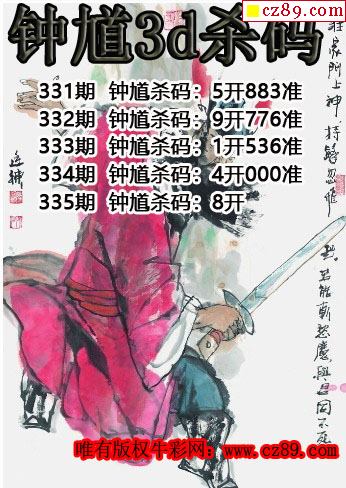 cz89.com
钟馗3d杀码
331期 钟馗杀码：5开883准
332期 钟馗杀码：9开776准
333期 钟馗杀码：1开536准
334期 钟馗杀码：4开000准
335期 钟馗杀码：8开
唯有版权牛彩网：www.cz89.com